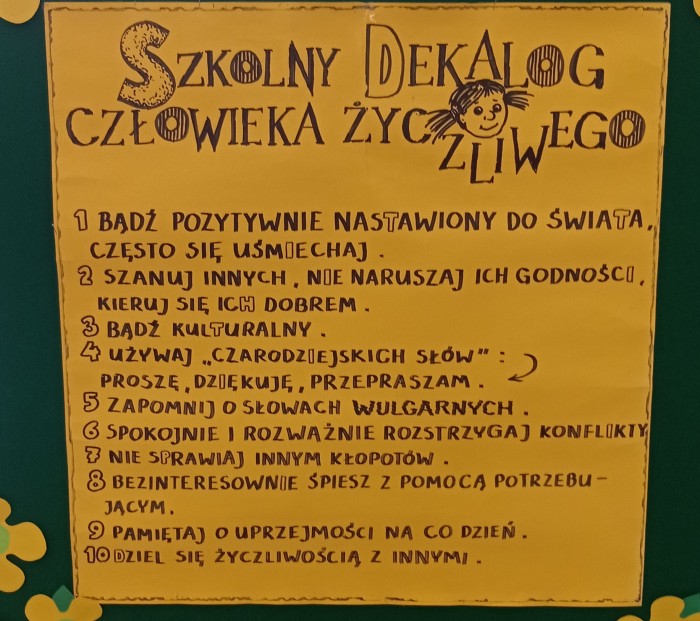 SZKOLNY DEKALOG
CZŁOWIEKA ŻYCZLIWEGO
1 BĄDŹ POZYTYWNIE NASTAWIONY DO ŚWIATA,
CZĘSTO SIĘ UŚMIECHAJ.
2 SZANUJ INNYCH, NIE NARUSZAJ ICH GODNOŚCI,
KIERUJ SIĘ ICH DOBREM.
3 BĄDŹ KULTURALNY.
4 UŻYWAJ „CZARODZIEJSKICH SŁÓW":
PROSZĘ, DZIĘKUJĘ, PRZEPRASZAM.
5 ZAPOMNIJ O SŁOWACH WULGARNYCH.
6 SPOKOJNIE I ROZWAŻNIE ROZSTRZYGAJ KONFLIKTY
7 NIE SPRAWIAJ INNYM KŁOPOTÓW.
8 BEZINTERESOWNIE ŚPIESZ Z POMOCĄ POTRZEBU-
JĄCYM.
9 PAMIĘTAJ O UPRZEJMOŚCI NA CO DZIEŃ.
10 DZIEL SIĘ ŻYCZLIWOŚCIĄ Z INNYMI.